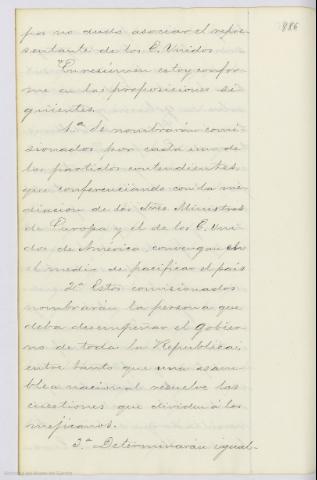 886
pos no dudó asociar el repre-
sentante de los E. Unidos.
"En resúmen estoy confor-
me en las proposiciones si-
guientes.
1ª Se nombrarán comi-
sionados por cada uno de
los partidos contendientes,
que conferenciando con la me-
diacion de los Sres. Ministros
de Europa y el de los E. Uni-
dos de América convengan en
el medio de pacificar el país
2ª Estos comisionados
nombrarán la persona que
deba desempeñar el gobier-
no de toda la República,
entre tanto que una asam-
blea nacional resuelve las
cuestiones que dividen á los
mejicanos.
3ª Determinarán igual-